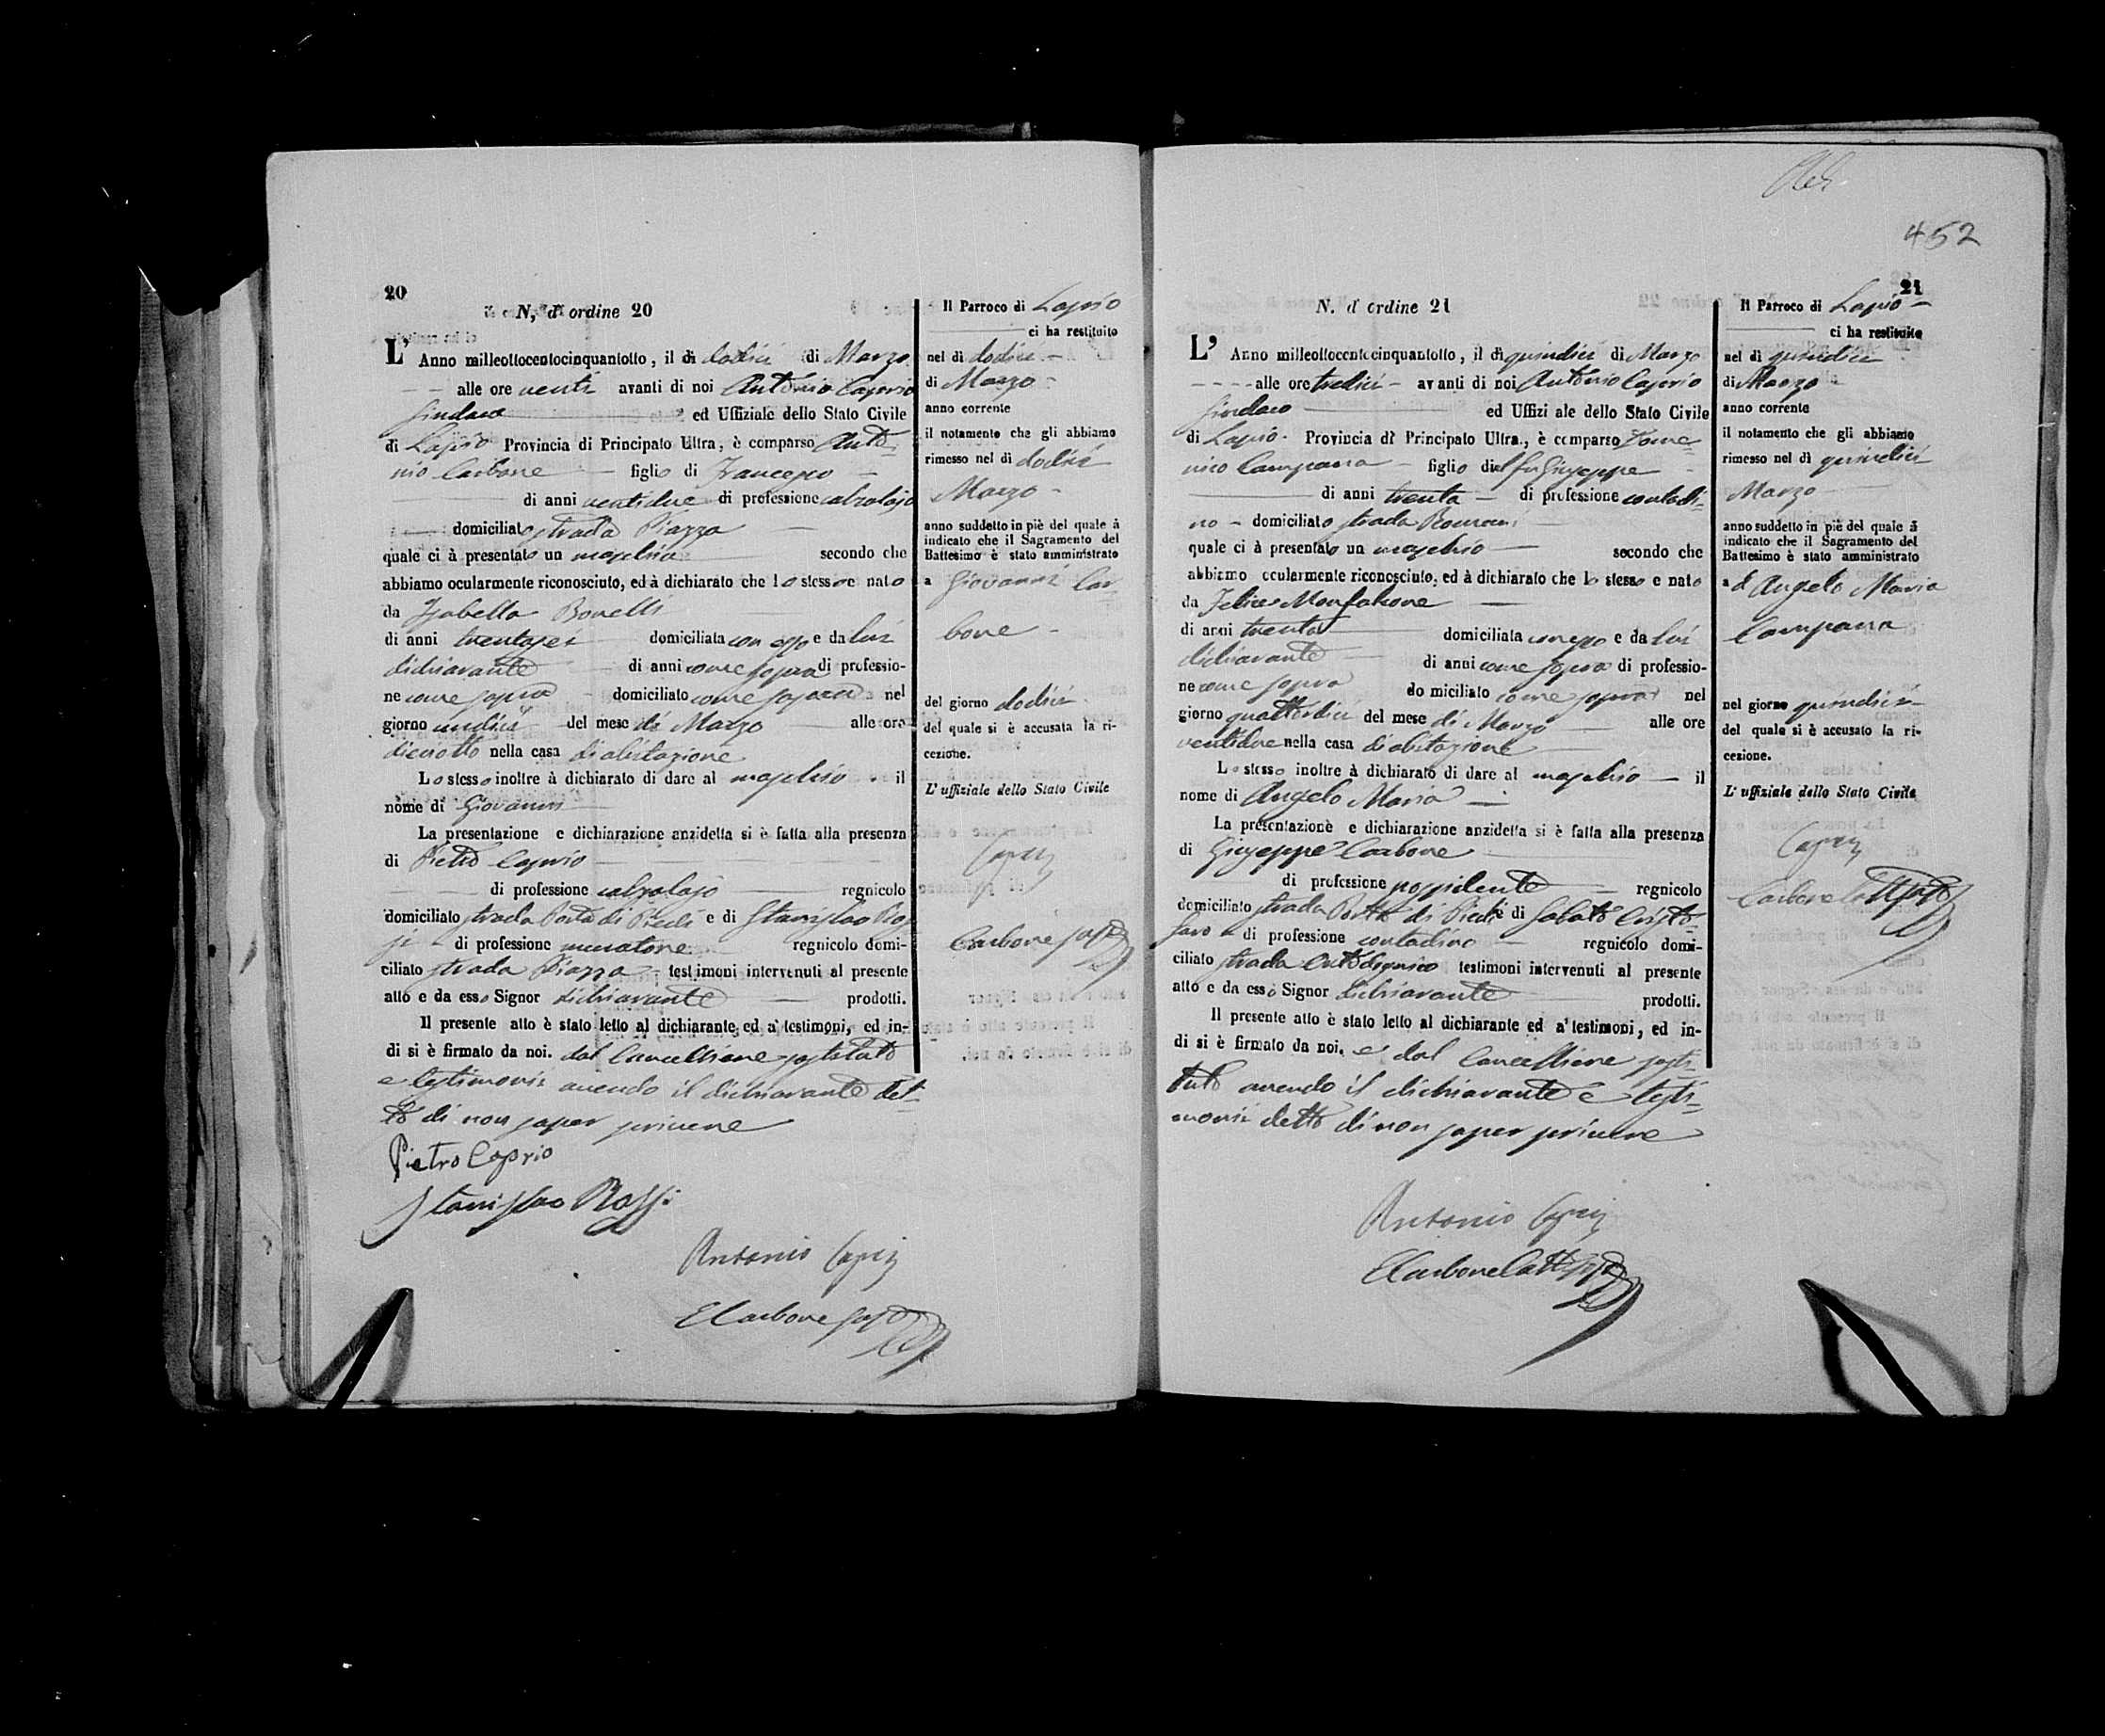 20
N, d' ordine 20
L' Anno milleottocentocinquantotto, il dì dodici di Marzo
alle ore venti avanti di noi Antonio Caprio
Sindaco ed Uffiziale dello Stato Civile
di Lapio Provincia di Principato Ultra, è comparso Anto=
nio Carbone figlio di Francesco
di anni ventidue di professione calzolajo
domiciliato strada Piazza
quale ci à presentato un maschio secondo che
abbiamo ocularmente riconosciuto, ed à dichiarato che lo stesso e nato
da Isabella Bonelli
di anni trentasei domiciliata con esso e da lui
dichiarante di anni come sopra di professio-
ne come sopra domiciliato come sopra nel
giorno undici del mese di Marzo alle ore
dieciotto nella casa di abitazione
Lo stesso inoltre à dichiarato di dare al maschio il
nome di Giovanni
La presentazione e dichiarazione anzidetta si è fatta alla presenza
di Pietro Caprio
di professione calzolajo regnicolo
domiciliato strada Porta di Piedi e di Stanislao Ros
si di professione muratore regnicolo domi-
ciliato strada Piazza testimoni intervenuti al presente
atto e da esso Signor dichiarante prodotti.
Il presente atto è stato letto al dichiarante ed a' testimoni, ed in-
di si è firmato da noi. dal Cancelliere sostituto
e testimonii avendo il dichiarante det=
to di non saper scrivere
Pietro Caprio
Stanislao Rossi
Antonio Caprio
E Carbone
Il Parroco di Lapio
ci ha restituito
nel dì dodici
di Marzo
anno corrente
il notamento che gli abbiamo
rimesso nel dì dodici
Marzo
anno suddetto in piè del quale à
indicato che il Sagramento del
Battesimo è stato amministrato
a Giovanni Car
bone
del giorno dodici
del quale si è accusata la ri-
cezione.
L' uffiziale dello Stato Civile
Caprio
Carbone
452
21
N. d' ordine 21
L' Anno milleottocentocinquantotto, il dì quindici di Marzo
alle ore tredici avanti di noi Antonio Caprio
Sindaco ed Uffizi ale dello Stato Civile
di Lapio Provincia di Principato Ultra., è comparso Dome=
nico Campana figlio del fu Giuseppe
di anni trenta di professione contadi=
no domiciliato strada Romani
quale ci à presentato un maschio secondo che
abbiamo ocularmente riconosciuto, ed à dichiarato che lo stesso e nato
da Felice Monfalcone
di anni trenta domiciliata con esso e da lui
dichiarante di anni come sopra di professio-
ne come sopra do miciliato come sopra nel
giorno quattordici del mese di Marzo alle ore
ventidue nella casa di abitazione
Lo stesso inoltre à dichiarato di dare al maschio il
nome di Angelo Maria
La presentazione e dichiarazione anzidetta si è fatta alla presenza
di Giuseppe Carbone
di professione possidente regnicolo
domiciliato strada Porta di Piedi e di Sabato Cristo=
faro di professione contadino regnicolo domi-
ciliato strada testimoni intervenuti al presente
atto e da esso Signor dichiarante prodotti.
Il presente atto è stato letto al dichiarante ed a' testimoni, ed in-
di si è firmato da noi. e dal Cancelliere sosti=
tuto avendo il dichiarante e testi=
monii detto di non saper scrivere
Antonio Caprio
E Carbone
Il Parroco di Lapio
ci ha restituito
nel dì quindici
di Marzo
anno corrente
il notamento che gli abbiamo
rimesso nel dì quindici
Marzo
anno suddetto in piè del quale à
indicato che il Sagramento del
Battesimo è stato amministrato
a d Angelo Maria
Campana
nel giorno quindici
del quale si è accusato la ri-
cezione.
L' uffiziale dello Stato Civile
Caprio
Carbone